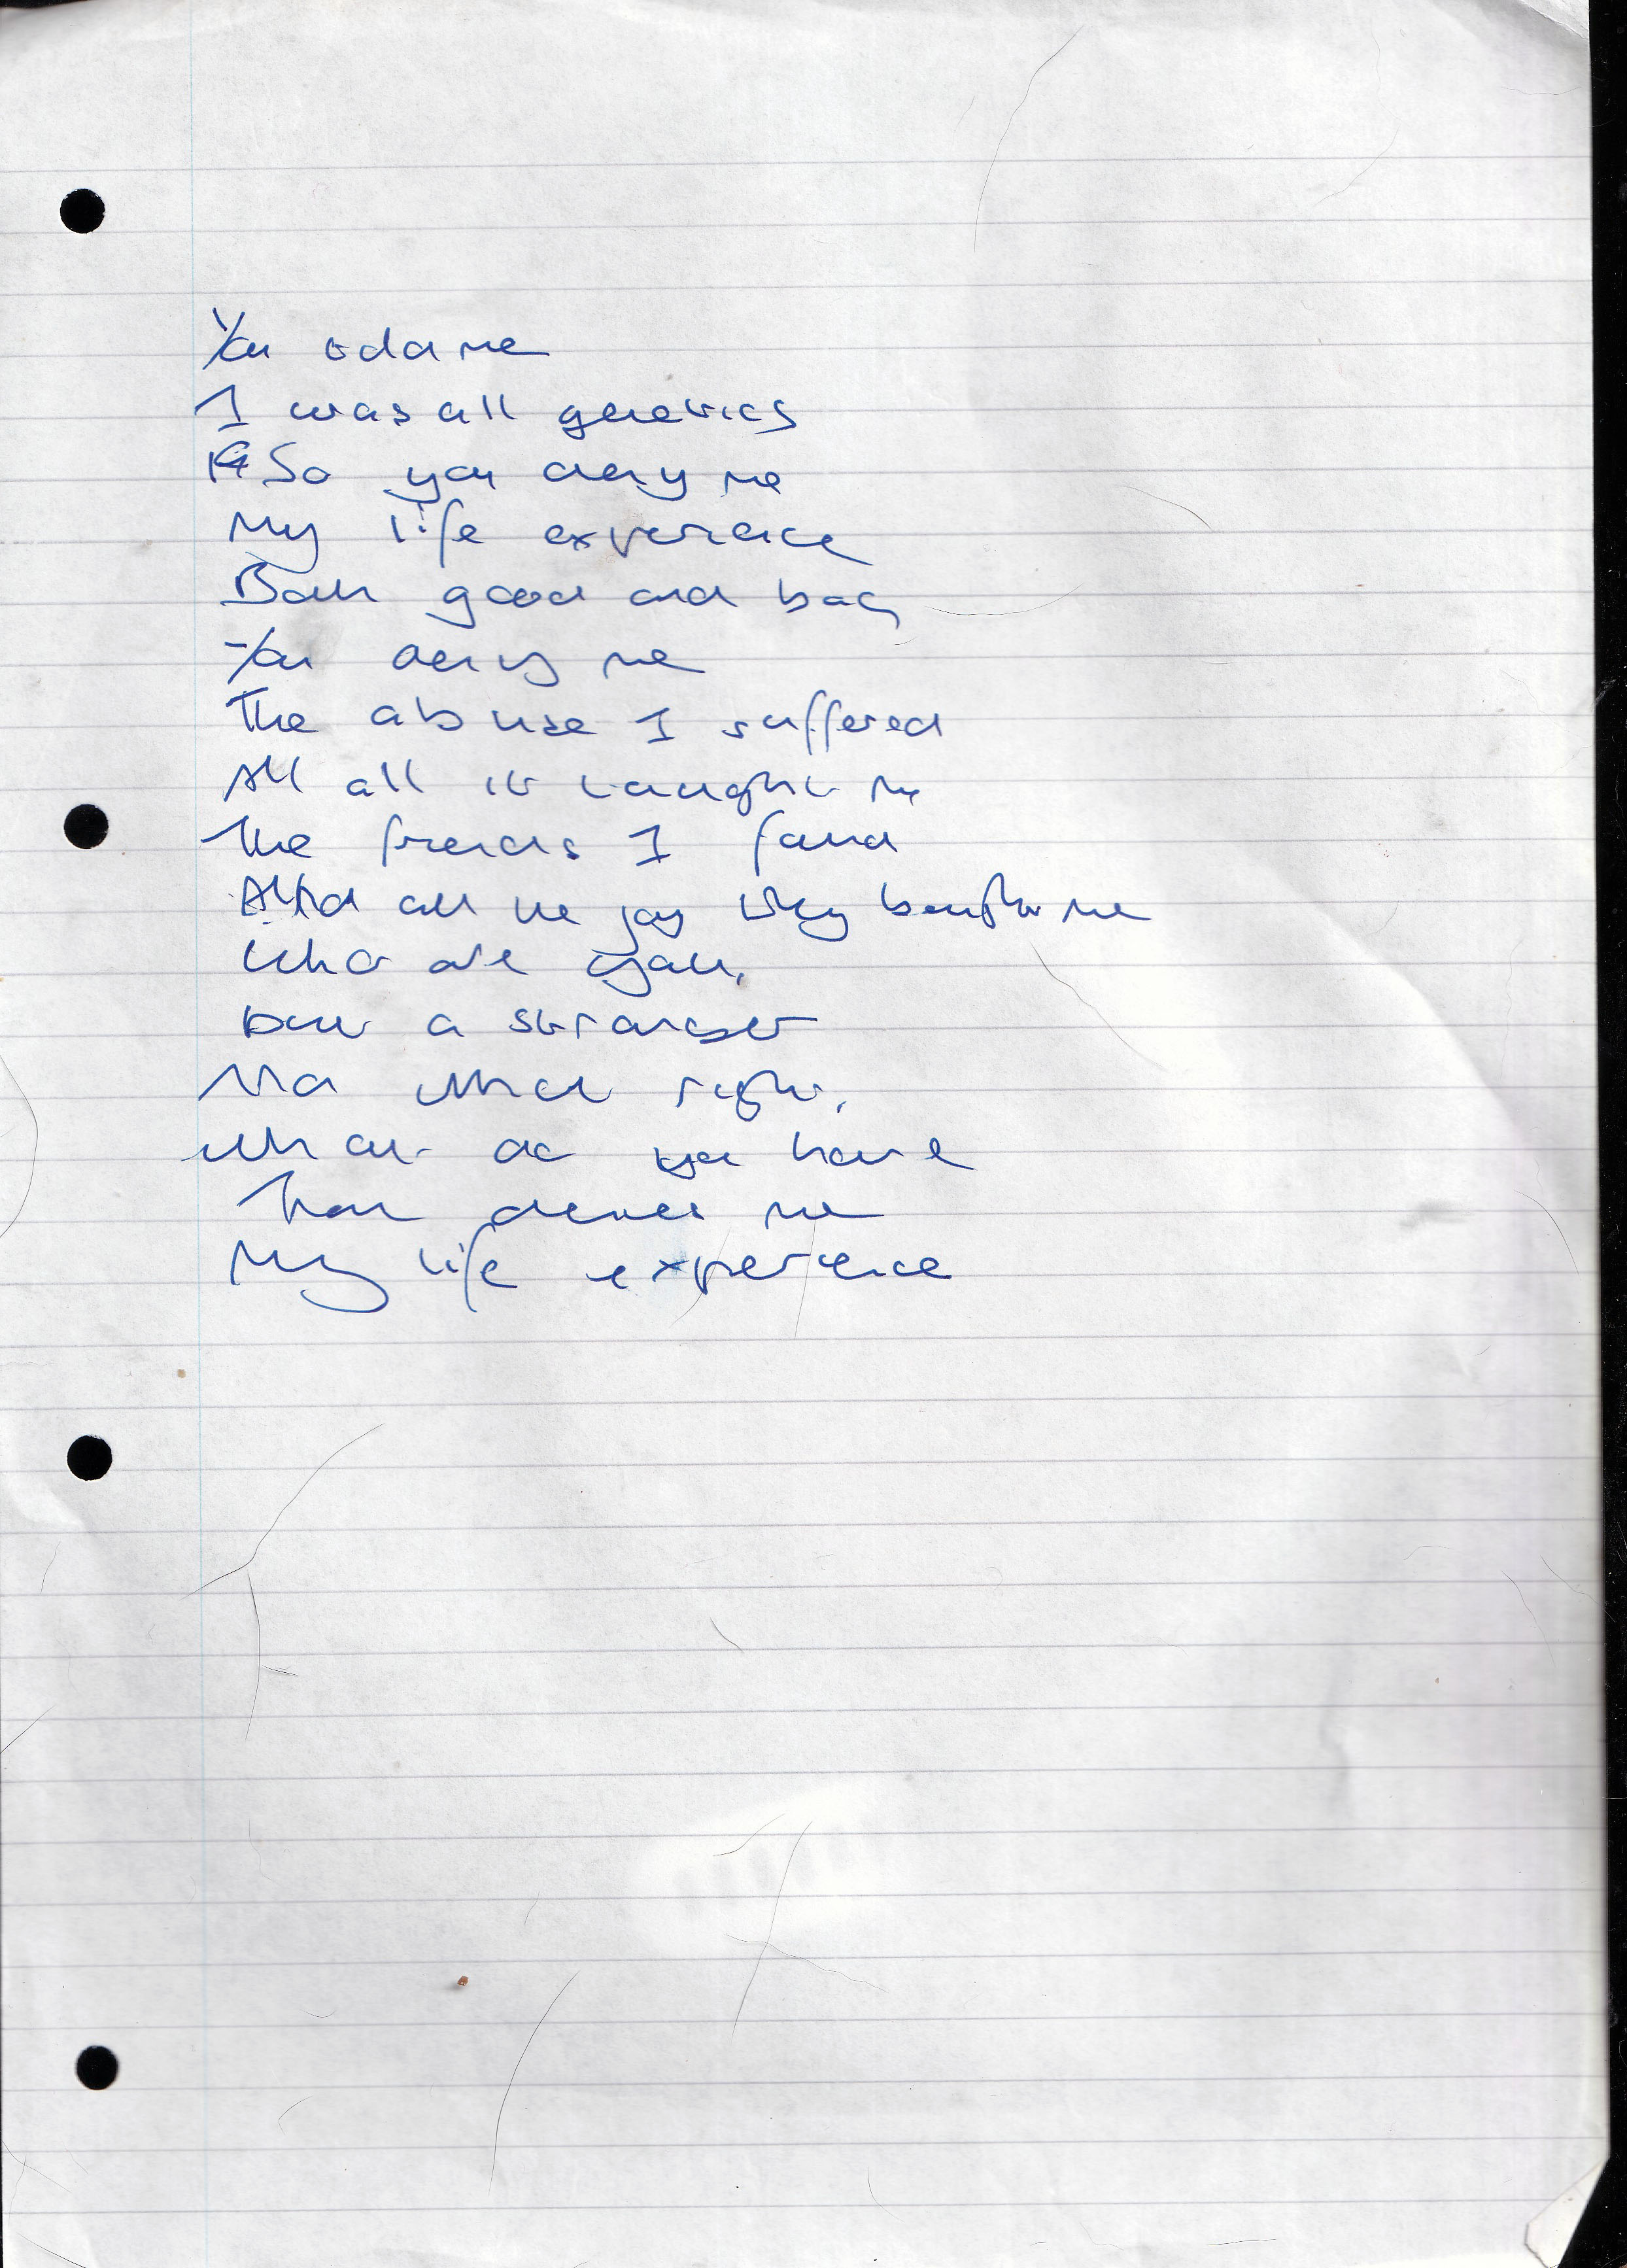 You told me
I was all genetics
So you deny me
My life experience
Both good and bad
You deny me
The abuse I suffered
All all it taught me
The friends I found
And all the joy they brought me
Who are you,
But a stranger
And what right,
What do you have
That denies me
My life experience